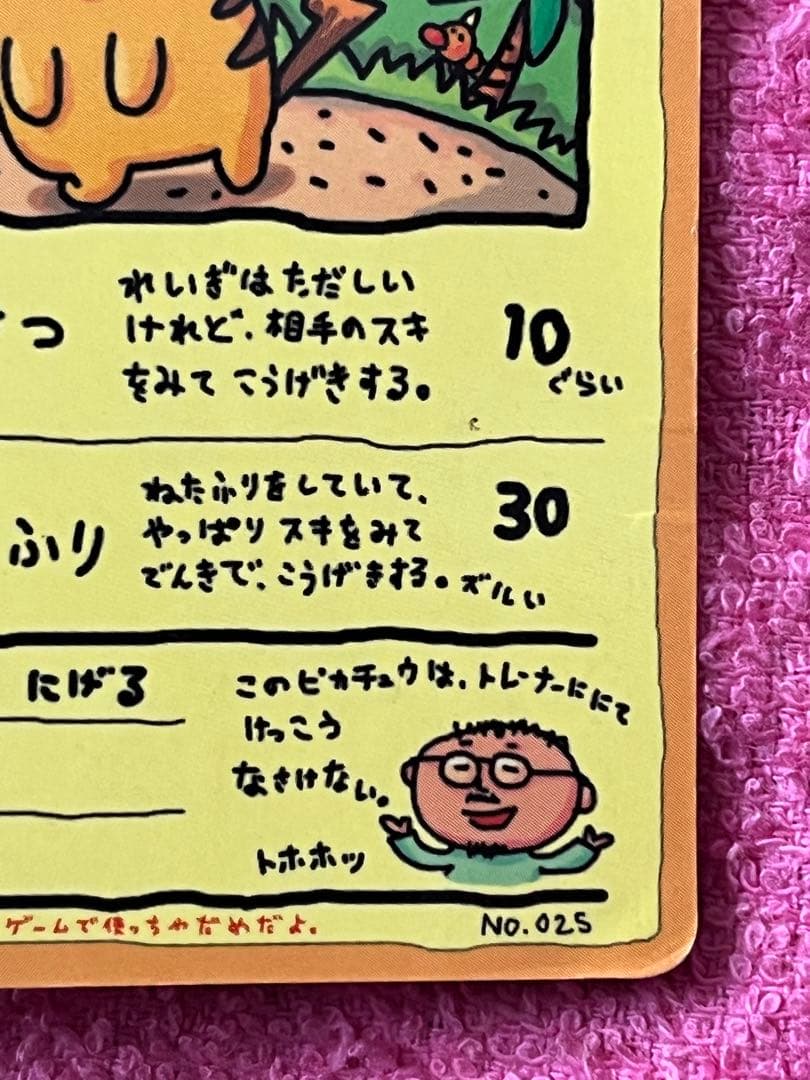 つ
れいぎはただしい
けれど、相手のスキ
をみて こうげきする。
10
ぐらい
ふり
ねたふりをしていて、
やっぱり スキをみて
でんきで、こうげきする。ズルい
30
にげる
このピカチュウは、トレーナーににて
けっこう
なさけない。
トホホッ
ゲームで使っちゃだめだよ。
NO.025